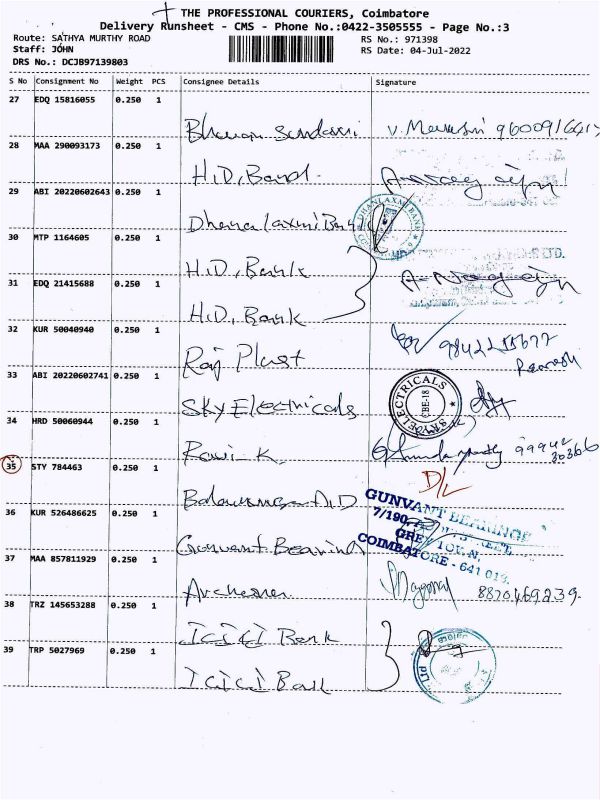 THE PROFESSIONAL COURIERS, Coimbatore
Delivery Runsheet - CMS - Phone No.:0422-3505555 - Page No.:3
Route: SATHYA MURTHY ROAD
RS No.: 971398
Staff: JOHN
RS Date: 04-Jul-2022
DRS No.: DCJB97139803
S No Consignment No Weight PCS Consignee Details Signature
27 EDQ 15816055 0.250 1
28 MAA 290093173 0.250 1
H.D. Band.
29 ABI 20220602643 0.250 1
Dhana laxmi Bank
DHANLAXMI BANK
30 MTP 1164605 0.250 1
H.D. Bank
31 EDQ 21415688 0.250 1
H.D. Bank
32 KUR 50040940 0.250 1
Raj Plast
33 ABI 20220602741 0.250 1
Sky Electricals
SKY ELECTRICALS
CBE-18
34 HRD 50060944 0.250 1
Ravi K.
35 STY 784463 0.250 1
D/L
36 KUR 526486625 0.250 1
Gunvant Bearing
GUNVANT BEARINGS
7/190, STREET,
GREY TOWN,
COIMBATORE - 641 018.
37 MAA 857811929 0.250 1
8870469239.
38 TRZ 145653288 0.250 1
Icici Bank
39 TRP 5027969 0.250 1
Icici Bank